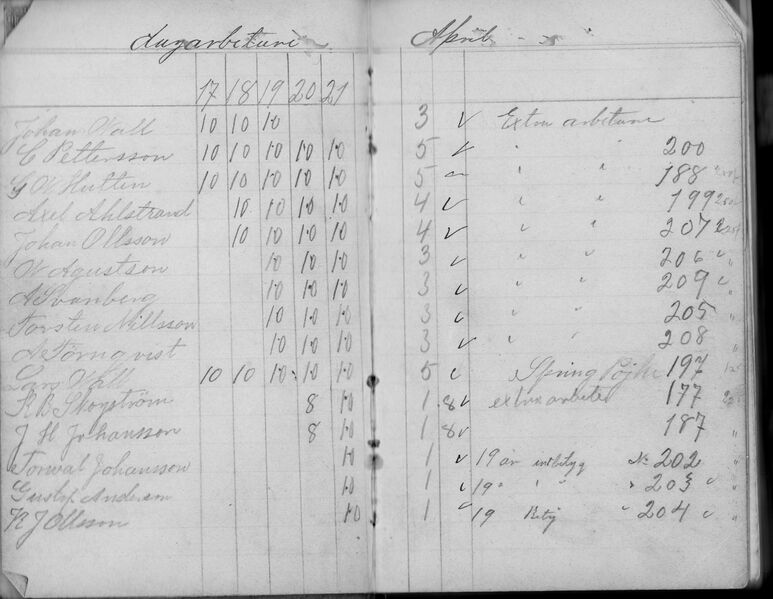 dagarbetare April
17 18 19 20 21
Johan Wall 10 10 10 3 v Extra arbetare
C Pettersson 10 10 10 10 10 5 v " " 200
G W Hutten 10 10 10 10 10 5 " " 188
Axel Ahlstrand 10 10 10 10 4 v " " 199
Johan Ollsson 10 10 10 10 4 v " " 207
W Agustson 10 10 10 3 v " " 206 "
A Svanberg 10 10 10 3 v " " 209 "
Torsten Nillsson 10 10 10 3 v " " 205 "
A Törnqvist 10 10 10 3 v " " 208 "
Lars Wall 10 10 10 10 10 5 v Spring Pojke 197
K B Skogström 8 10 1 8 v extra arbete 177
J H Johansson 8 10 1 8 v 187 "
Torwal Johansson 10 1 v 19 år No 202 "
Gustaf Anderson 10 1 v 19 " " " " 203 "
K J Ollsson 10 1 v 19 Betÿ " 204 "